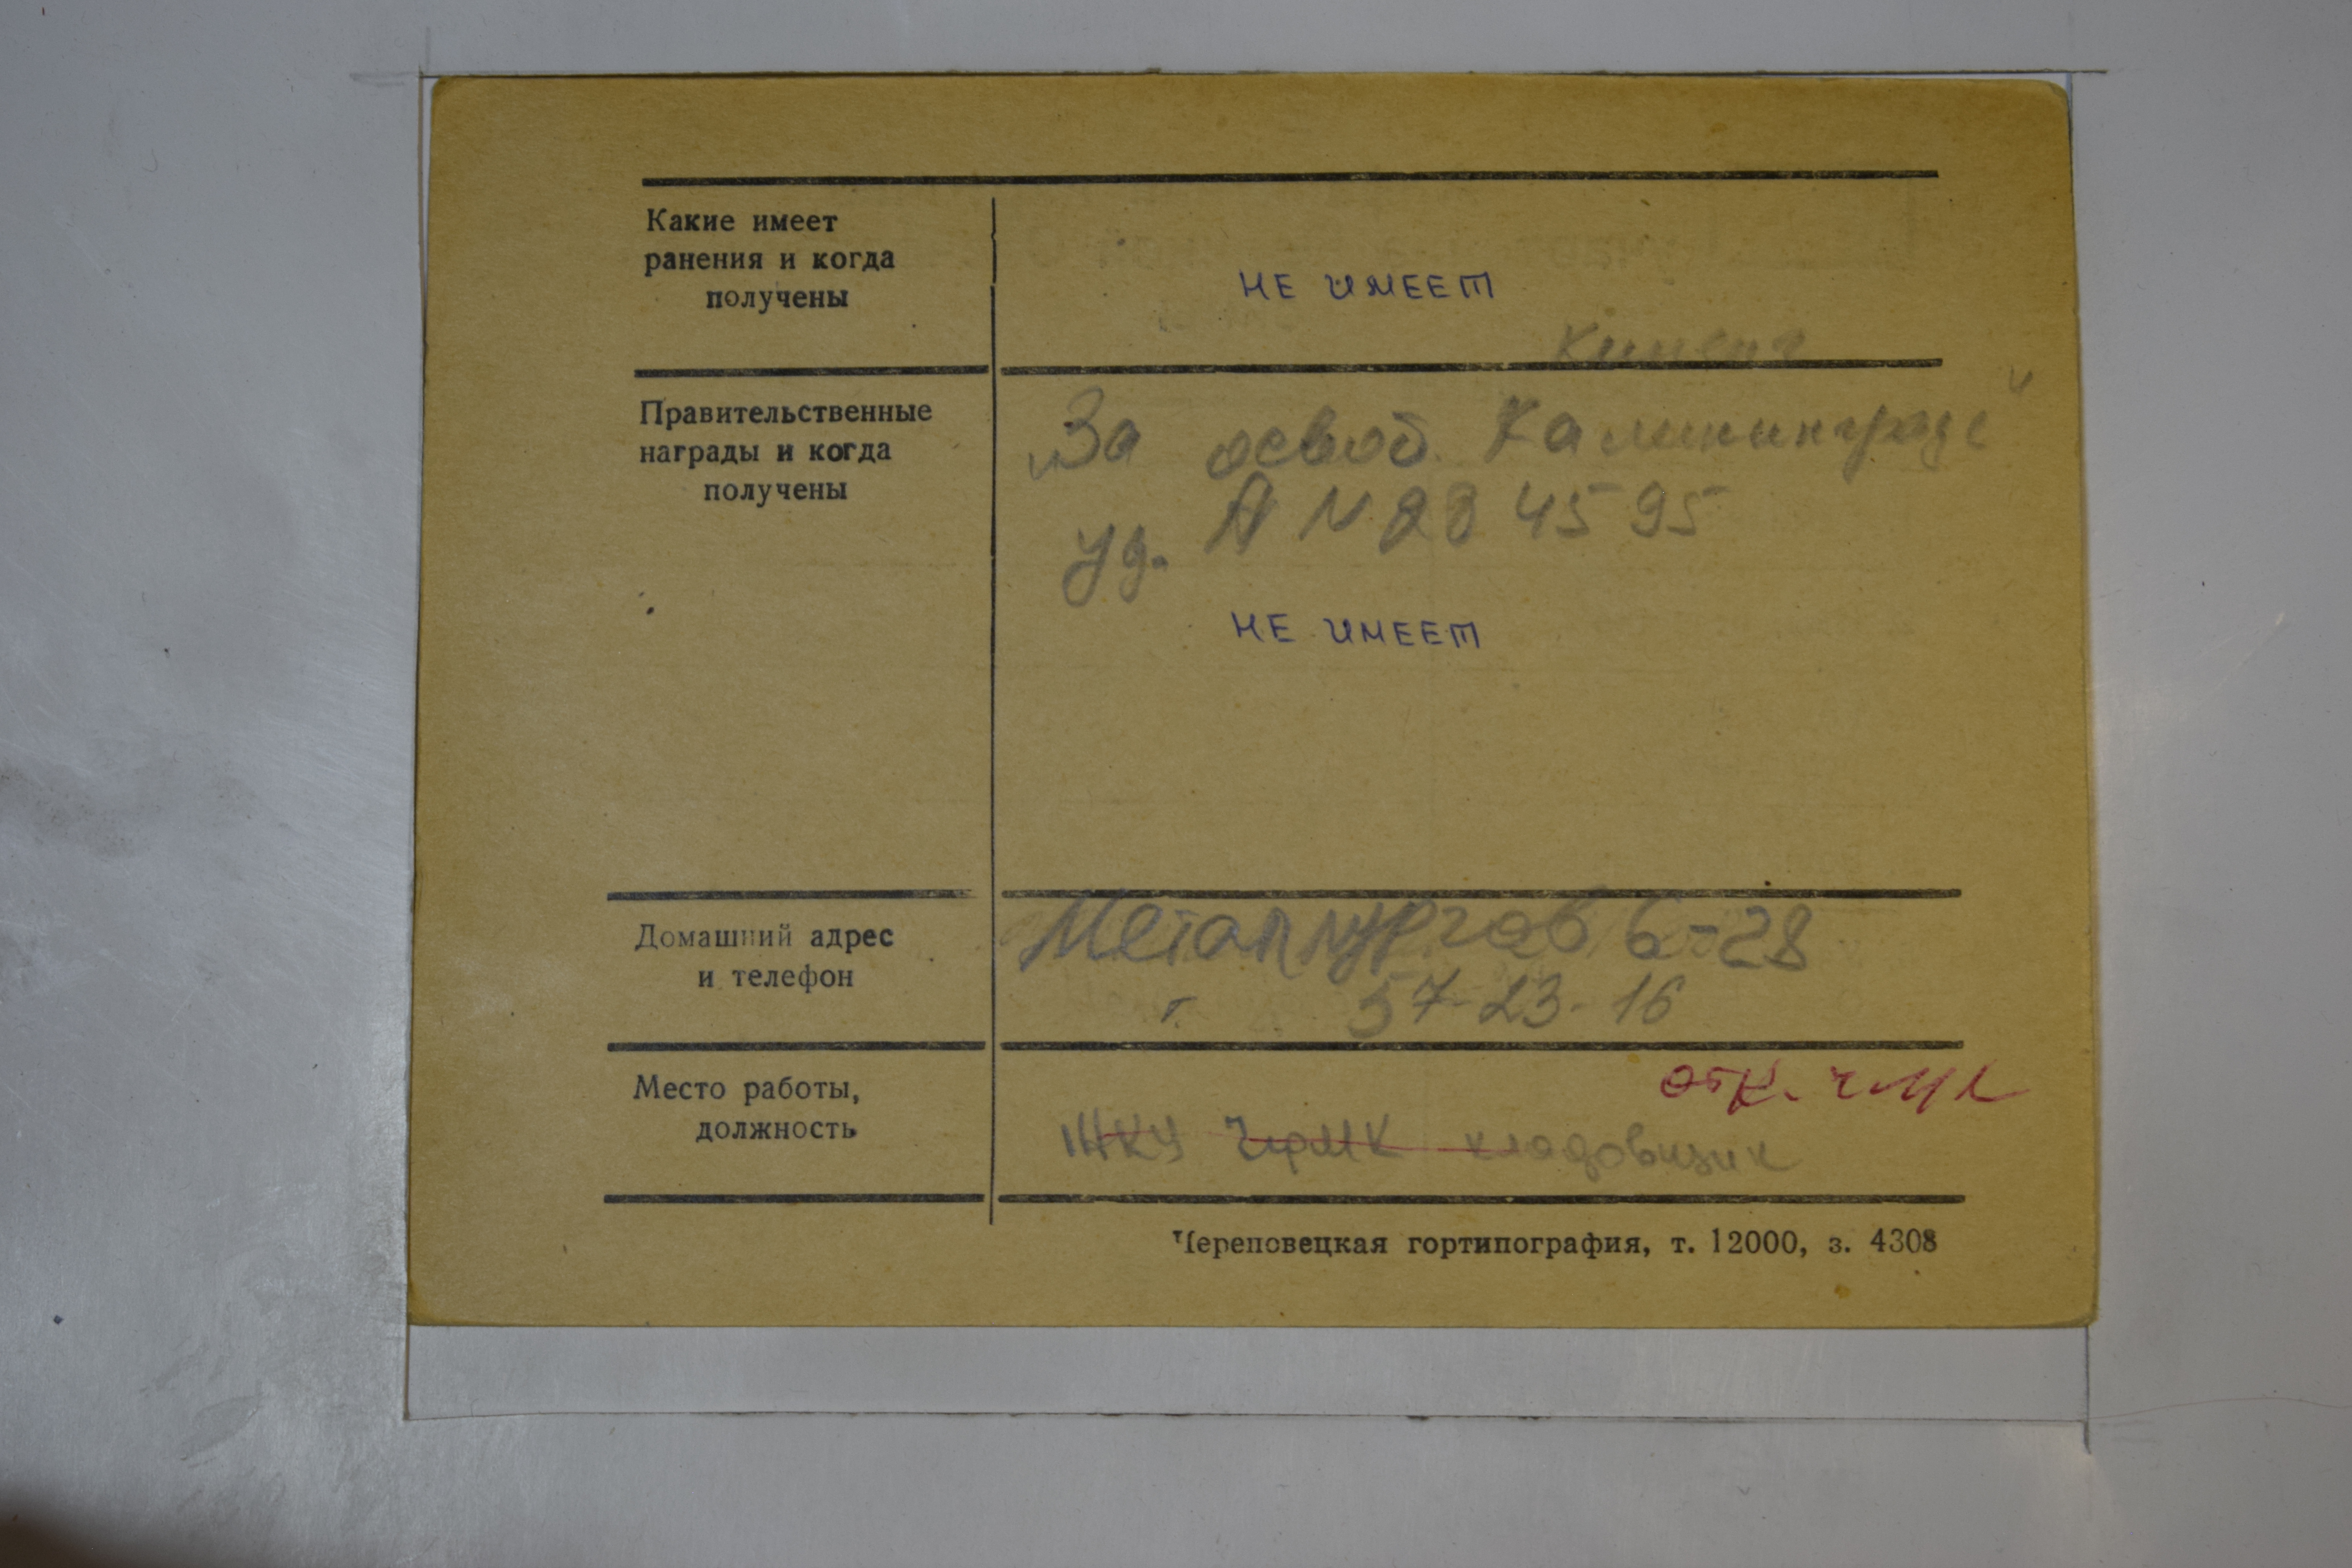 Какие имеет
ранения и когда
получены
НЕ ИМЕЕТ
Правительственные
награды и когда
получены
„За освоб. Калининграда"
уд. А N 284595
НЕ ИМЕЕТ
Домашний адрес
и телефон
Металлургов 6-28
т 57-23-16
Место работы,
должность
ЖКУ ЧФМК кладовщик
Череповецкая гортипография, т. 12000, з. 4308